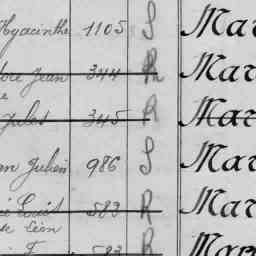 Hyacinthe 1105 S Mar
Jean 344 R Mar
e
Jules 345 R Mar
Julien 986 S Mar
Louis 583 R Mar
Léon
583 R Mar